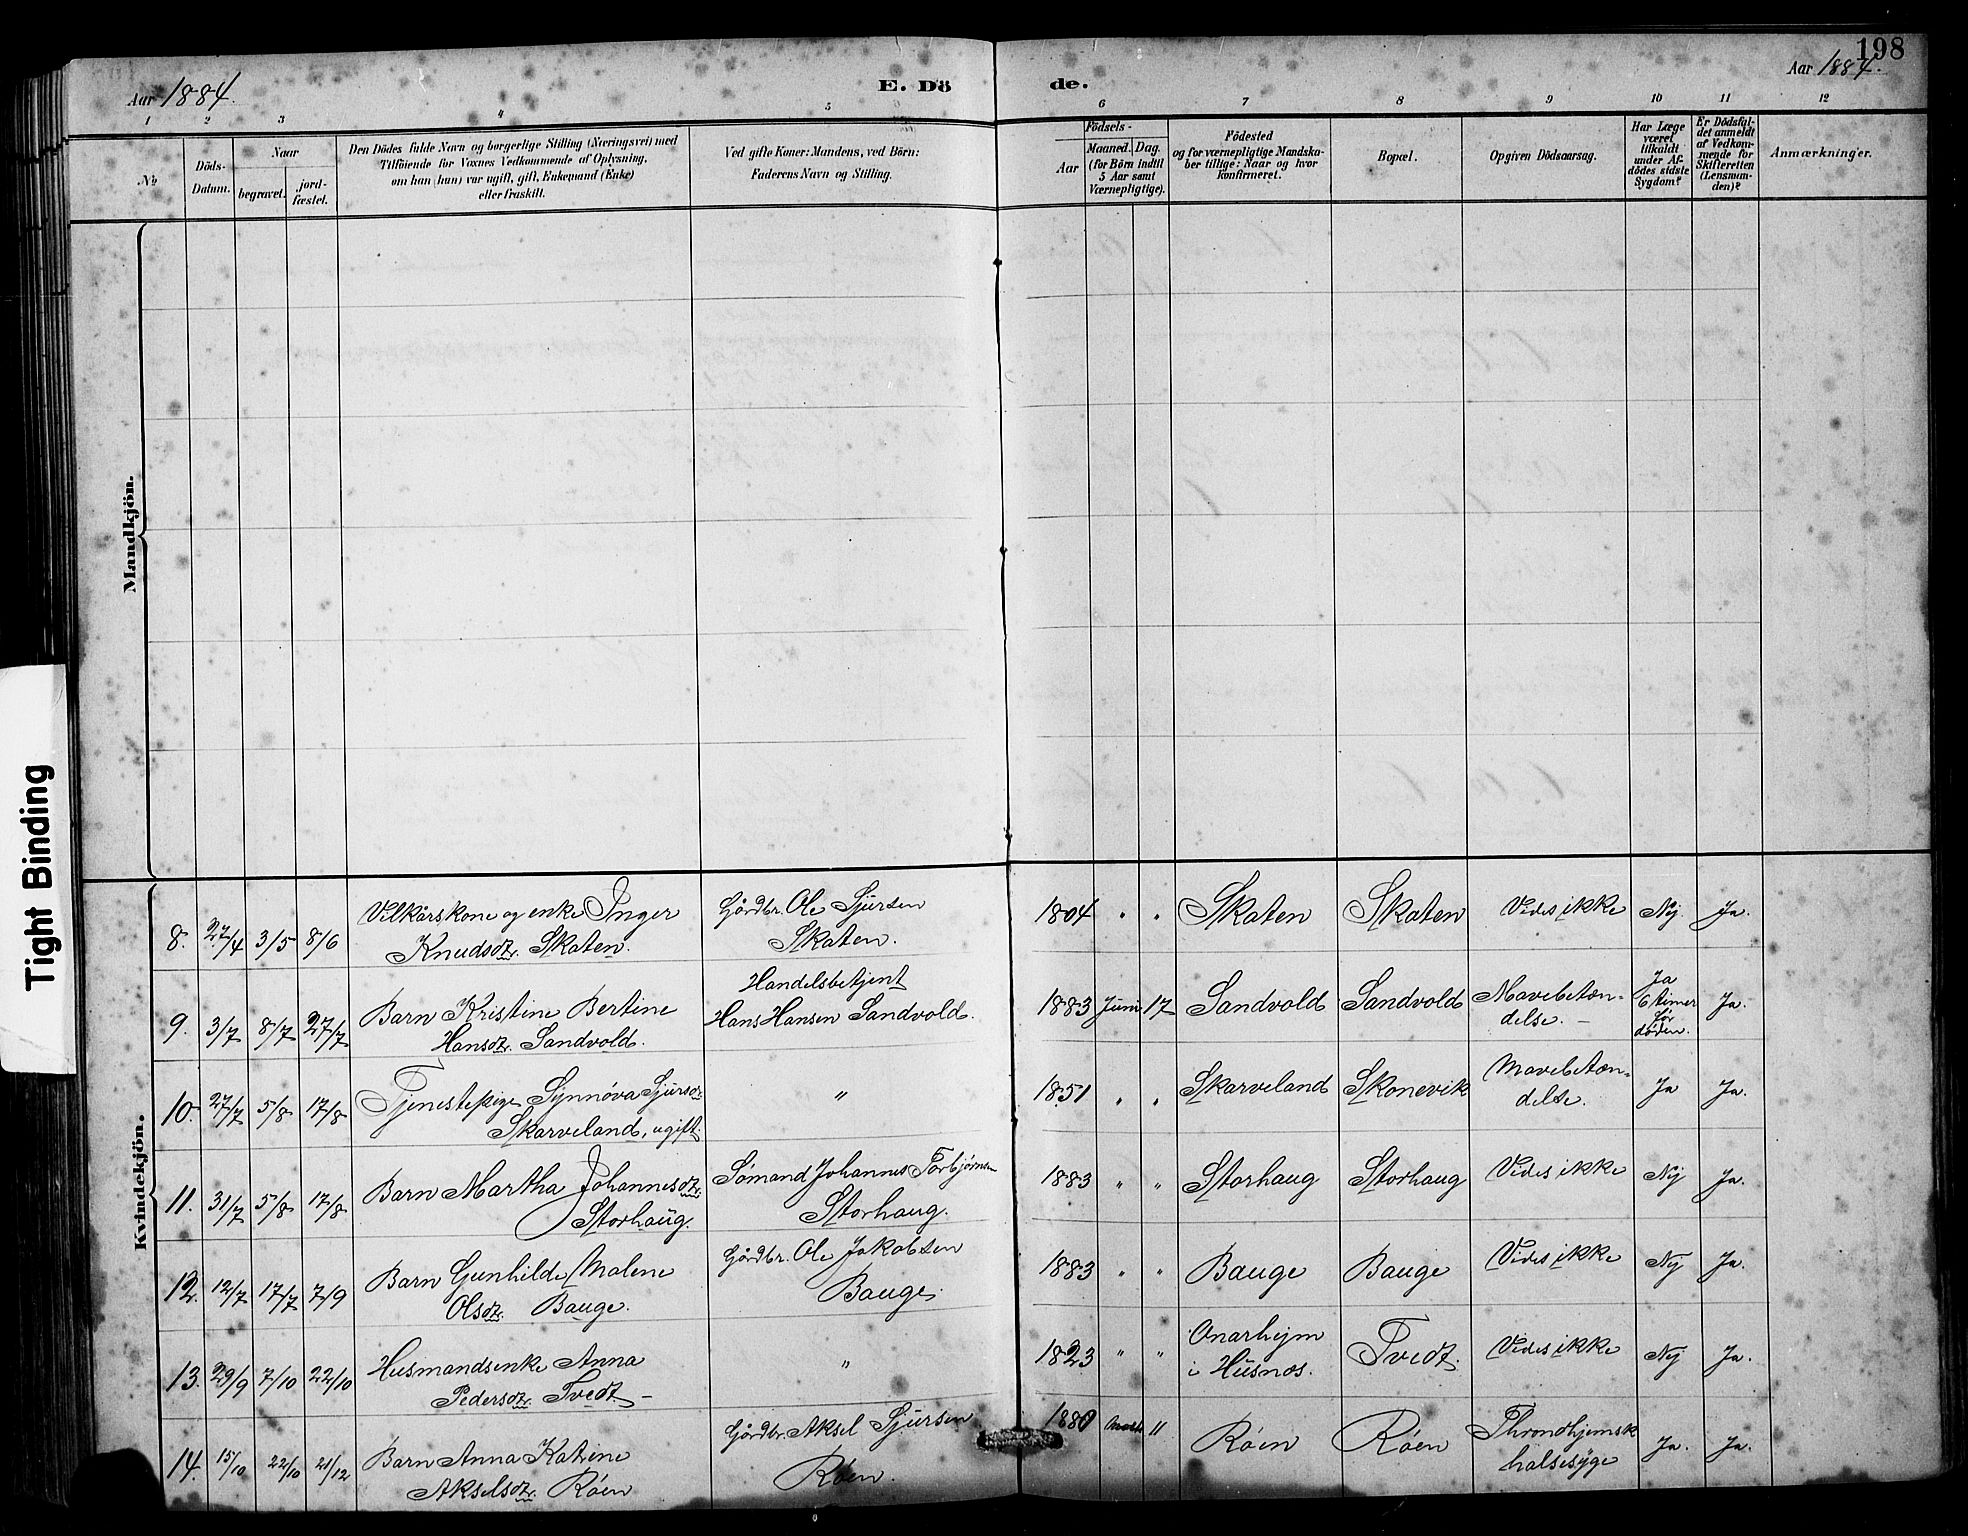 198
Aar 1884.
E. Dö
de.
Aar 1884.
1 2 3 4 5 6 7 8 9 10 11 12
No
Döds-
Datum.
Naar
begravet.
jord-
fæstet.
Den Dödes fulde Navn og borgerlige Stilling (Næringsvei) med
Tilföiende for Voxnes Vedkommende af Oplysning,
om han (hun) var ugift, gift, Enkemand (Enke)
eller fraskilt.
Ved gifte Koner: Mandens, ved Börn:
Faderens Navn og Stilling.
Födsels-
Aar
Maaned. Dag.
(for Börn indtil
5 Aar samt
Værnepligtige).
Födested
og for værnepligtige Mandska-
ber tillige: Naar og hvor
konfirmeret.
Bopæl.
Opgiven Dödsaarsag.
Har Læge
været
tilkaldt
under Af-
dödes sidste
Sygdom?
Er Dödsfal-
det anmeldt
af Vedkom-
mende for
Skifteretten
(Lensman-
den)?
Anmærkninger.
Mandkjön.
Tight Binding
Kvindekjön.
8. 27/4 3/5 8/6 Vilkårskone og enke Inger
Knudsdtr. Skaten.
Gårdbr. Ole Sjursen
Skaten.
1804 " " Skaten Skaten Vides ikke Nej Ja.
9. 3/7 8/7 27/7 Barn Kristine Bertine
Hansdtr. Sandvold.
Handelsbetjent
Hans Hansen Sandvold.
1883 Juni 17 Sandvold Sandvold Mavebetæn-
delse. –
Ja
6 timer
før
døden.
Ja.
10. 27/7 5/8 17/8 Tjenestepige Synnøva Sjursdtr
Skarveland, ugift.
"
1851 " " Skarveland Skonevik Mavebetæn-
delse.
Ja Ja.
11. 31/7 5/8 17/8 Barn Martha Johannesdtr.
Storhaug.
Sømand Johannes Torbjørnsen
Storhaug.
1883 " " Storhaug Storhaug Vides ikke Nej Ja.
12. 12/7 17/7 7/9 Barn Gunhilde Malene
Olsdtr. Bauge.
Gårdbr. Ole Jakobsen
Bauge.
1883 " " Bauge Bauge Vides ikke Nej Ja.
13. 29/9 7/10 22/10 Husmandsenke Anna
Pedersdtr. Tvedt –
"
1823 " " Onarhejm
i Husnes.
Tvedt. Vides ikke Nej Ja.
14. 15/10 22/10 21/12 Barn Anna Katrine
Akselsdtr. Røen
Gårdbr. Aksel Sjursen
Røen.
1880 11 Røen Røen Throndhjemsk
halsesyge
Ja. Ja.